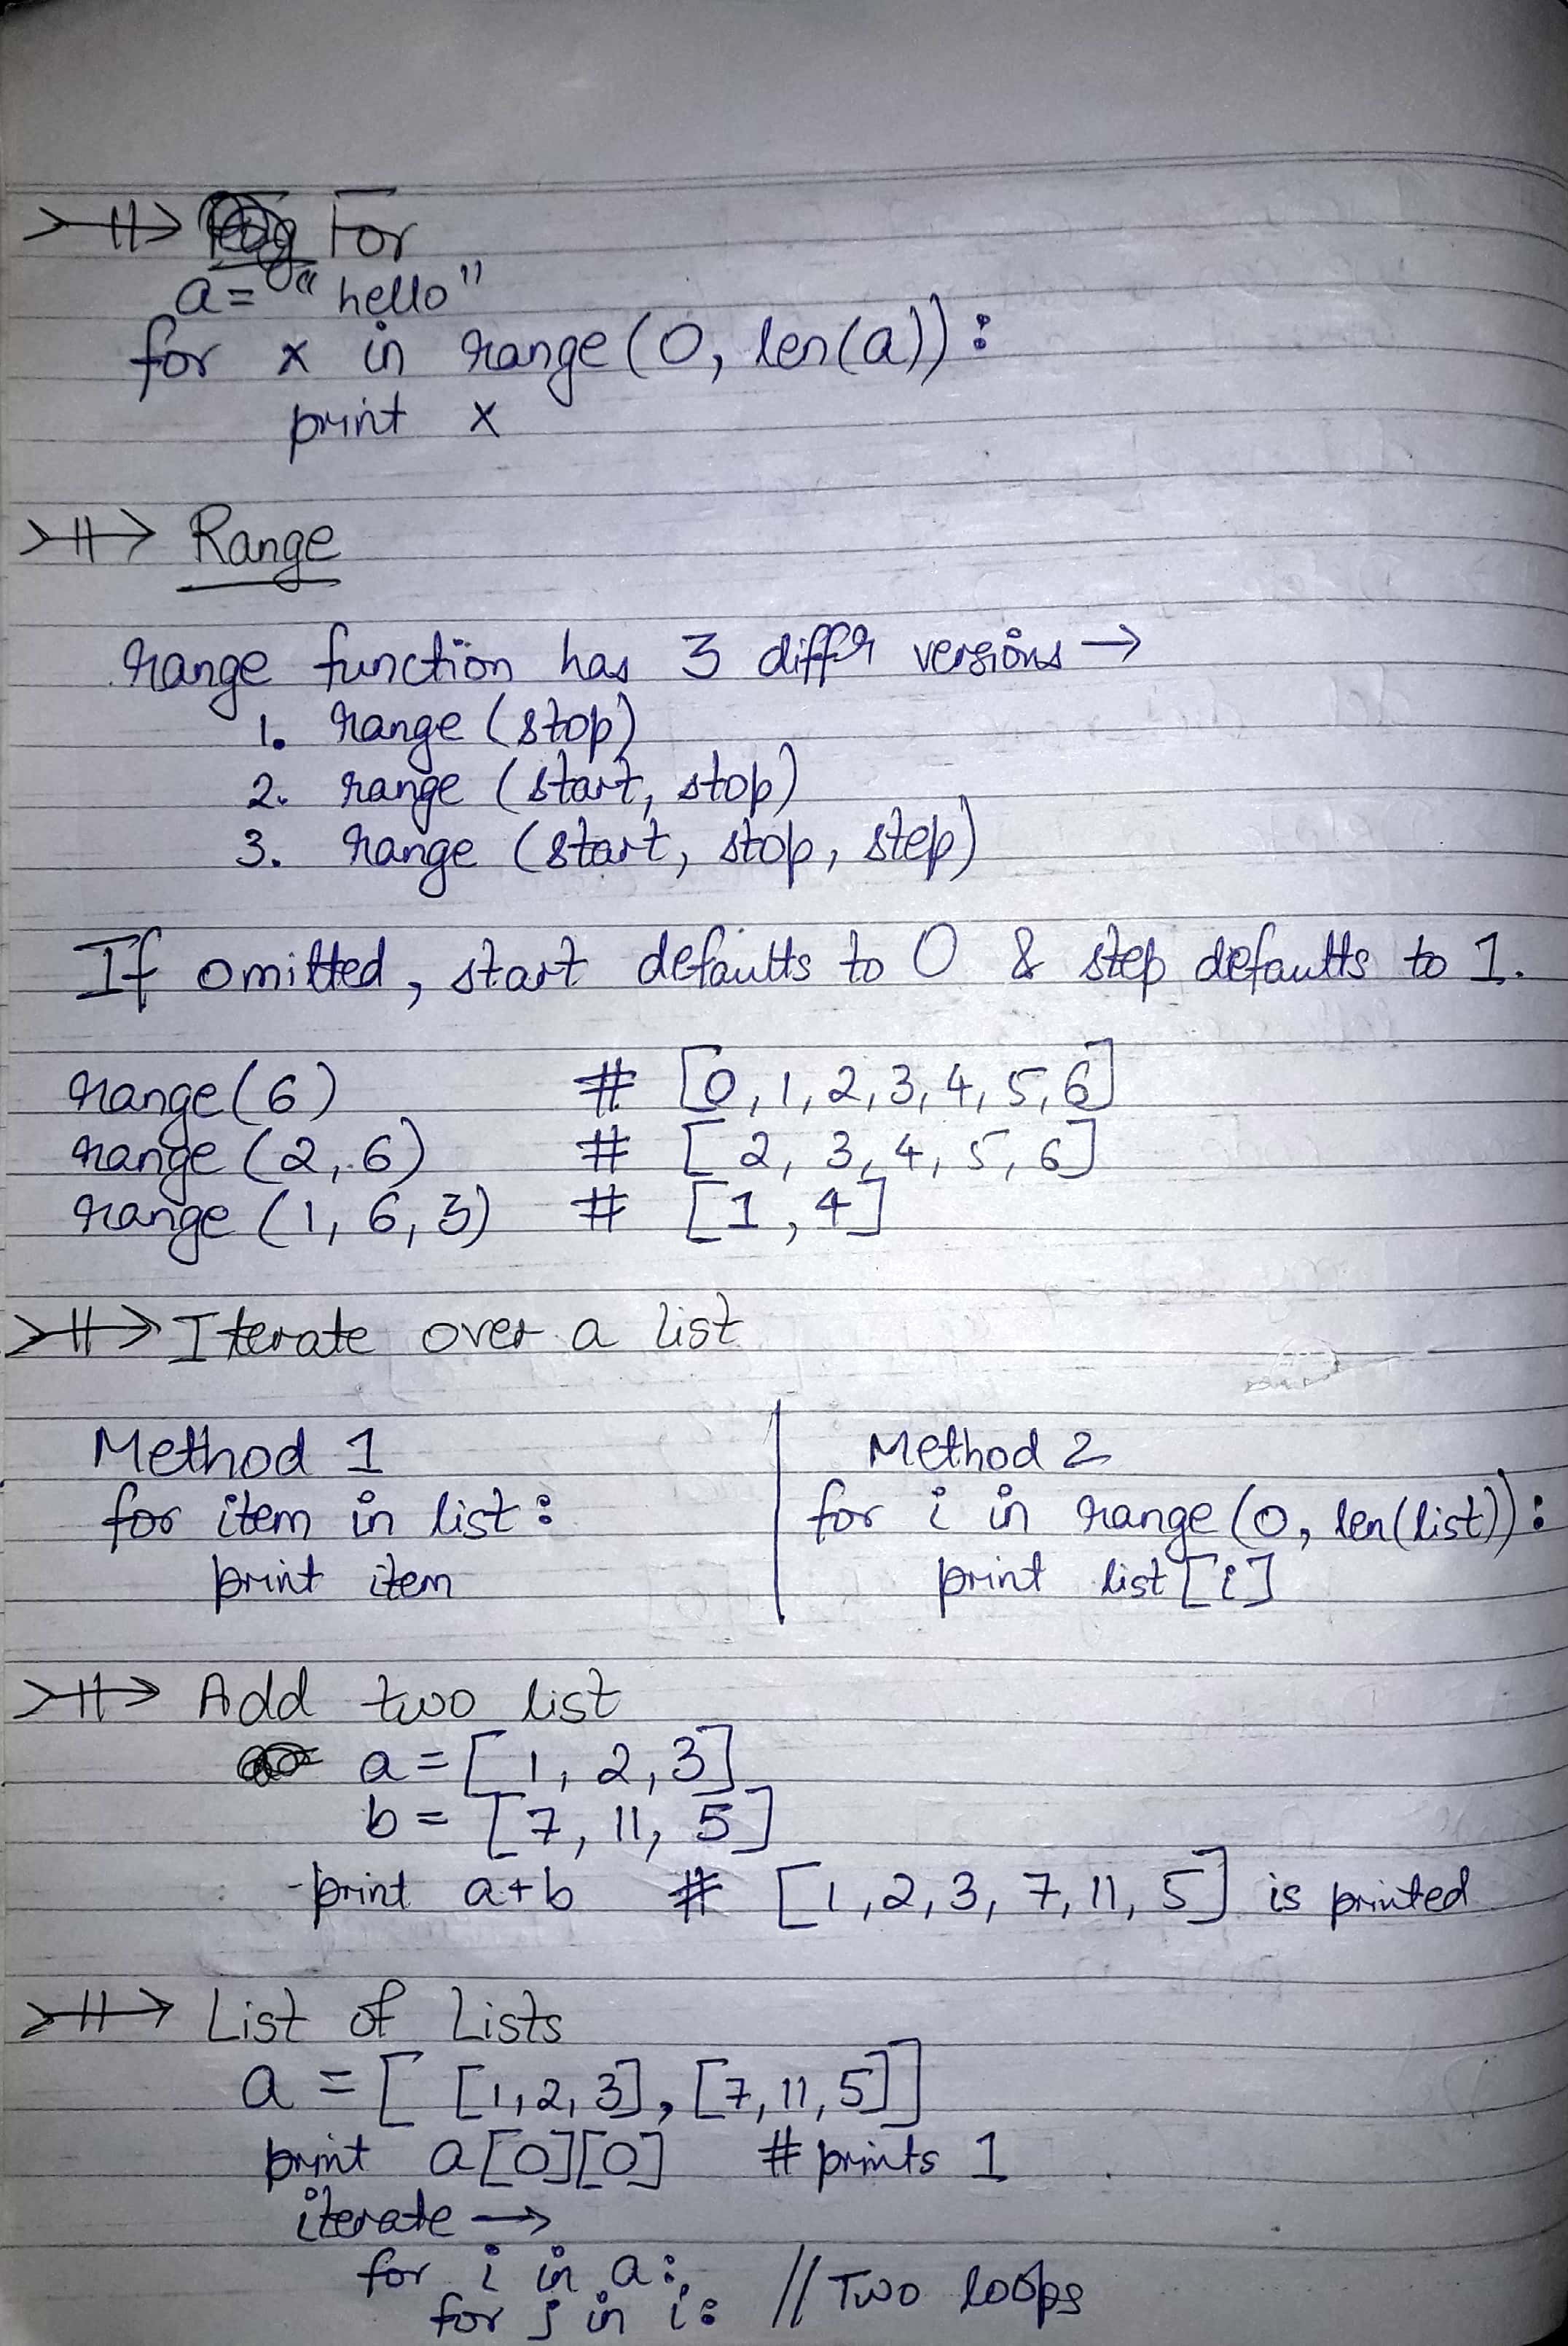 For
a = "hello"
for x in range(0, len(a)):
print x
Range
range function has 3 diffr versions →
1. range (stop)
2. range (start, stop)
3. range (start, stop, step)
If omitted, start defaults to 0 & step defaults to 1.
range(6) # [0,1,2,3,4,5,6]
range (2,6) # [2, 3,4,5,6]
range (1,6,3) # [1,4]
Iterate over a list
Method 1
for item in list:
print item
Method 2
for i in range(0, len(list)):
print list[i]
Add two list
a = [1, 2,3]
b = [7, 11, 5]
print a+b # [1,2,3, 7,11, 5] is printed
List of Lists
a = [ [1,2,3], [7,11,5]]
print a[0][0] # prints 1
iterate →
for i in a: // Two loops
for j in i: